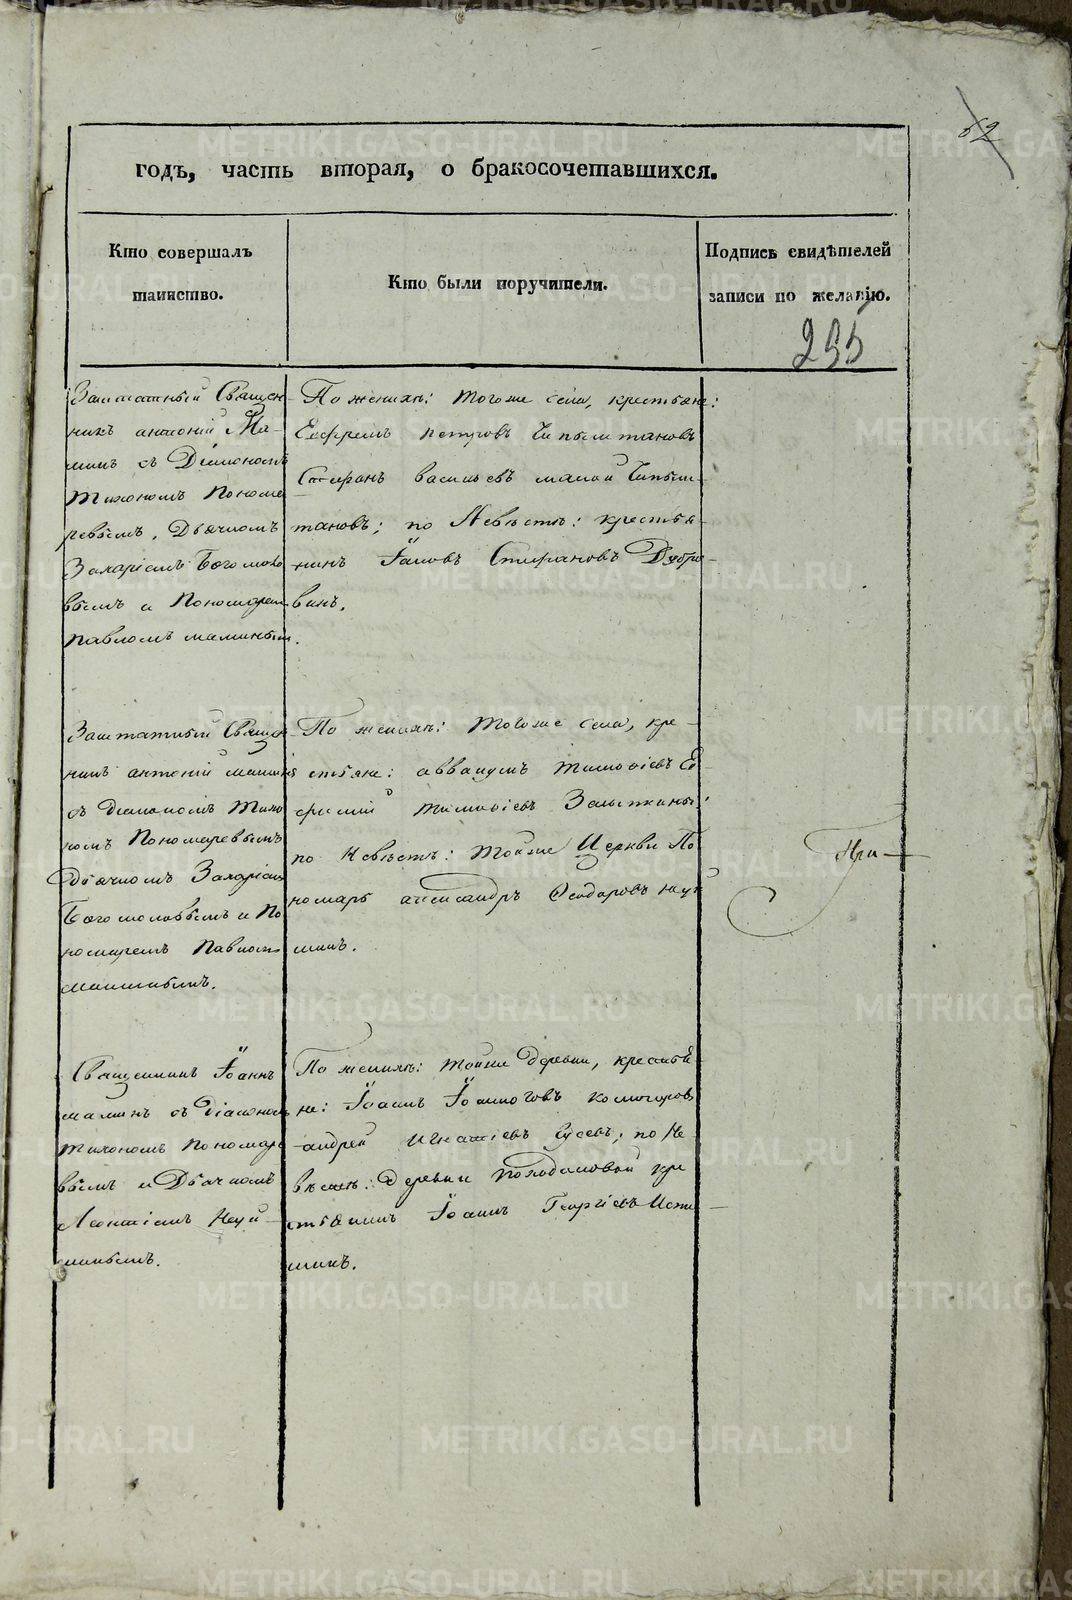 62
годъ, часть вторая, о бракосочетавшихся.
Кто совершалъ
таинство.
Кто были поручители.
Подпись свидѣтелей
записи по желанію.
295
Заштатный Священ-
никъ антоній Ма-
минъ съ Діакономъ
тихономъ Понома
ревымъ, Дьячкомъ
Захаріемъ Богомоло
вымъ и Пономаремъ
павломъ маминымъ.
По женихѣ: тогоже села, крестьяне:
Ефремъ петровъ
Стефанъ васильевъ малой
тановъ; по Невѣстѣ: крестья-
нинъ Іаковъ Стефановъ Дубро-
винъ.
Заштатный Священ-
никъ антоній маминъ
съ Діакономъ тихо
номъ Пономаревымъ
Дьячкомъ Захаріемъ
Богомоловымъ и По
номаремъ Павломъ
маминымъ.
По женихѣ: тогоже села, кре-
стьяне: аввакумъ тимофіевъ Е-
фимій тимофіевъ
по Невѣстѣ: тойже Церкви По
номарь александръ Ѳеодоровъ наум
минъ.
При
Священникъ Іоаннъ
маминъ съ діакономъ
тихономъ Пономаре
вымъ и Дьячкомъ
Леонтіемъ
По женихѣ: тойже деревни, крестья-
не: Іоаннъ Іоанновъ
андрей Игнатіевъ Гусевъ; по Не-
вѣстѣ: деревни кре
стьянинъ Іоаннъ Георгіевъ
минъ.
METRIKI.GASO-URAL.RU